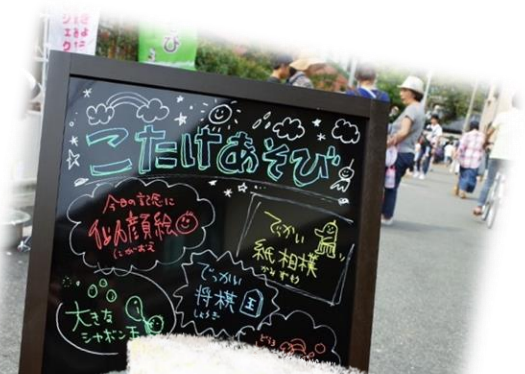 こたけあそび
今日の記念に
似顔絵
にがおえ
でっかい
紙相撲
かみずもう
でっかい
将棋
しょうぎ
大きな
シャボン玉